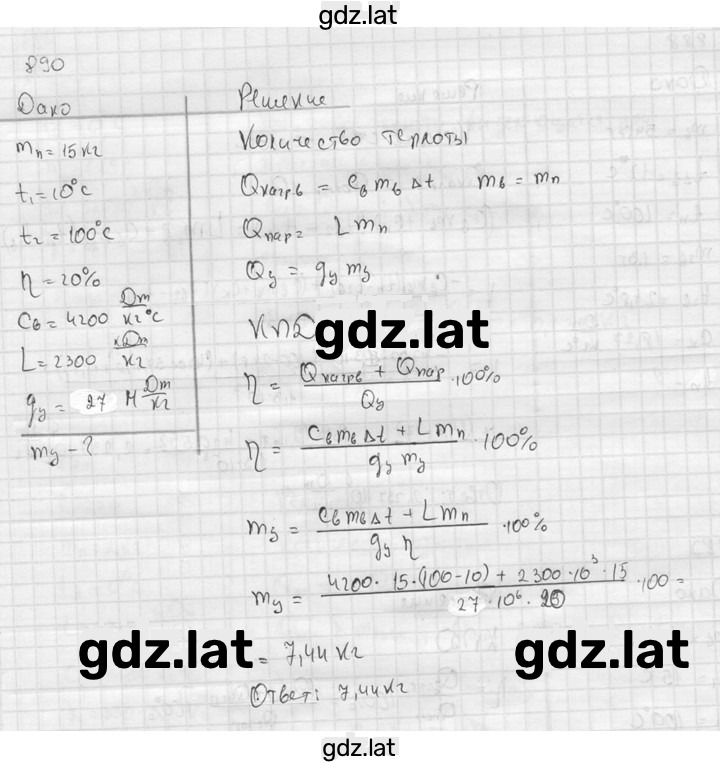 gdz.lat
890
Дано
mп = 15 кг
t₁ = 10°C
t₂ = 100°C
η = 20%
Cв = 4200 Дж/кг°C
L = 2300 кДж/кг
qу = 27 МДж/кг
mу - ?
Решение
Количество теплоты
Qнагрв = Cв mв Δt mв = mп
Qпар = L mп
Qу = qу mу
КПД
gdz.lat
η = (Qнагрв + Qпар)/Qу · 100%
η = (Cв mв Δt + L mп)/(qу mу) · 100%
mу = (Cв mв Δt + L mп)/(qу η) · 100%
mу = (4200 · 15 · (100-10) + 2300 · 10³ · 15)/(27 · 10⁶ · 20) · 100 =
= 7,44 кг
Ответ: 7,44 кг
gdz.lat gdz.lat
gdz.lat